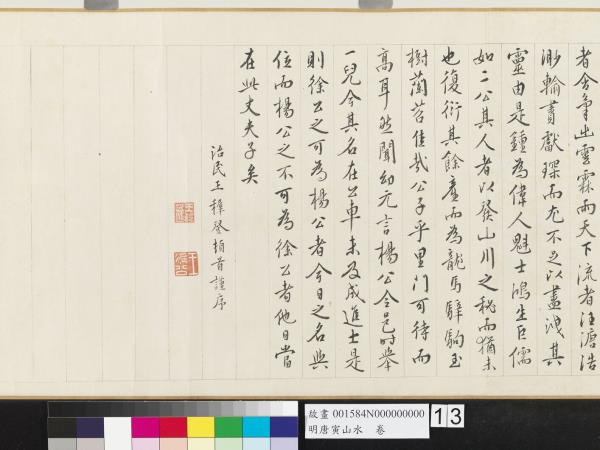 者舍筆出雲霖雨天下流者汪濊浩
渺輪囷獻琛而尤不足以盡洩其
靈由是鍾為偉人魁士鴻生巨儒
如二公其人者以發山川之秘而猶未
也復衍其餘慶而為龍馬驊駒玉
樹蘭苕佳哉公子乎里門可待而
高耳然聞幼元言楊公令邑時舉
一兒今其名在公車未及成進士是
則徐公之可為楊公者今日之名與
位而楊公之不可為徐公者他日當
在此丈夫子矣
治民王穉登頓首謹序
故畫 001584N000000000
明唐寅山水 卷
13